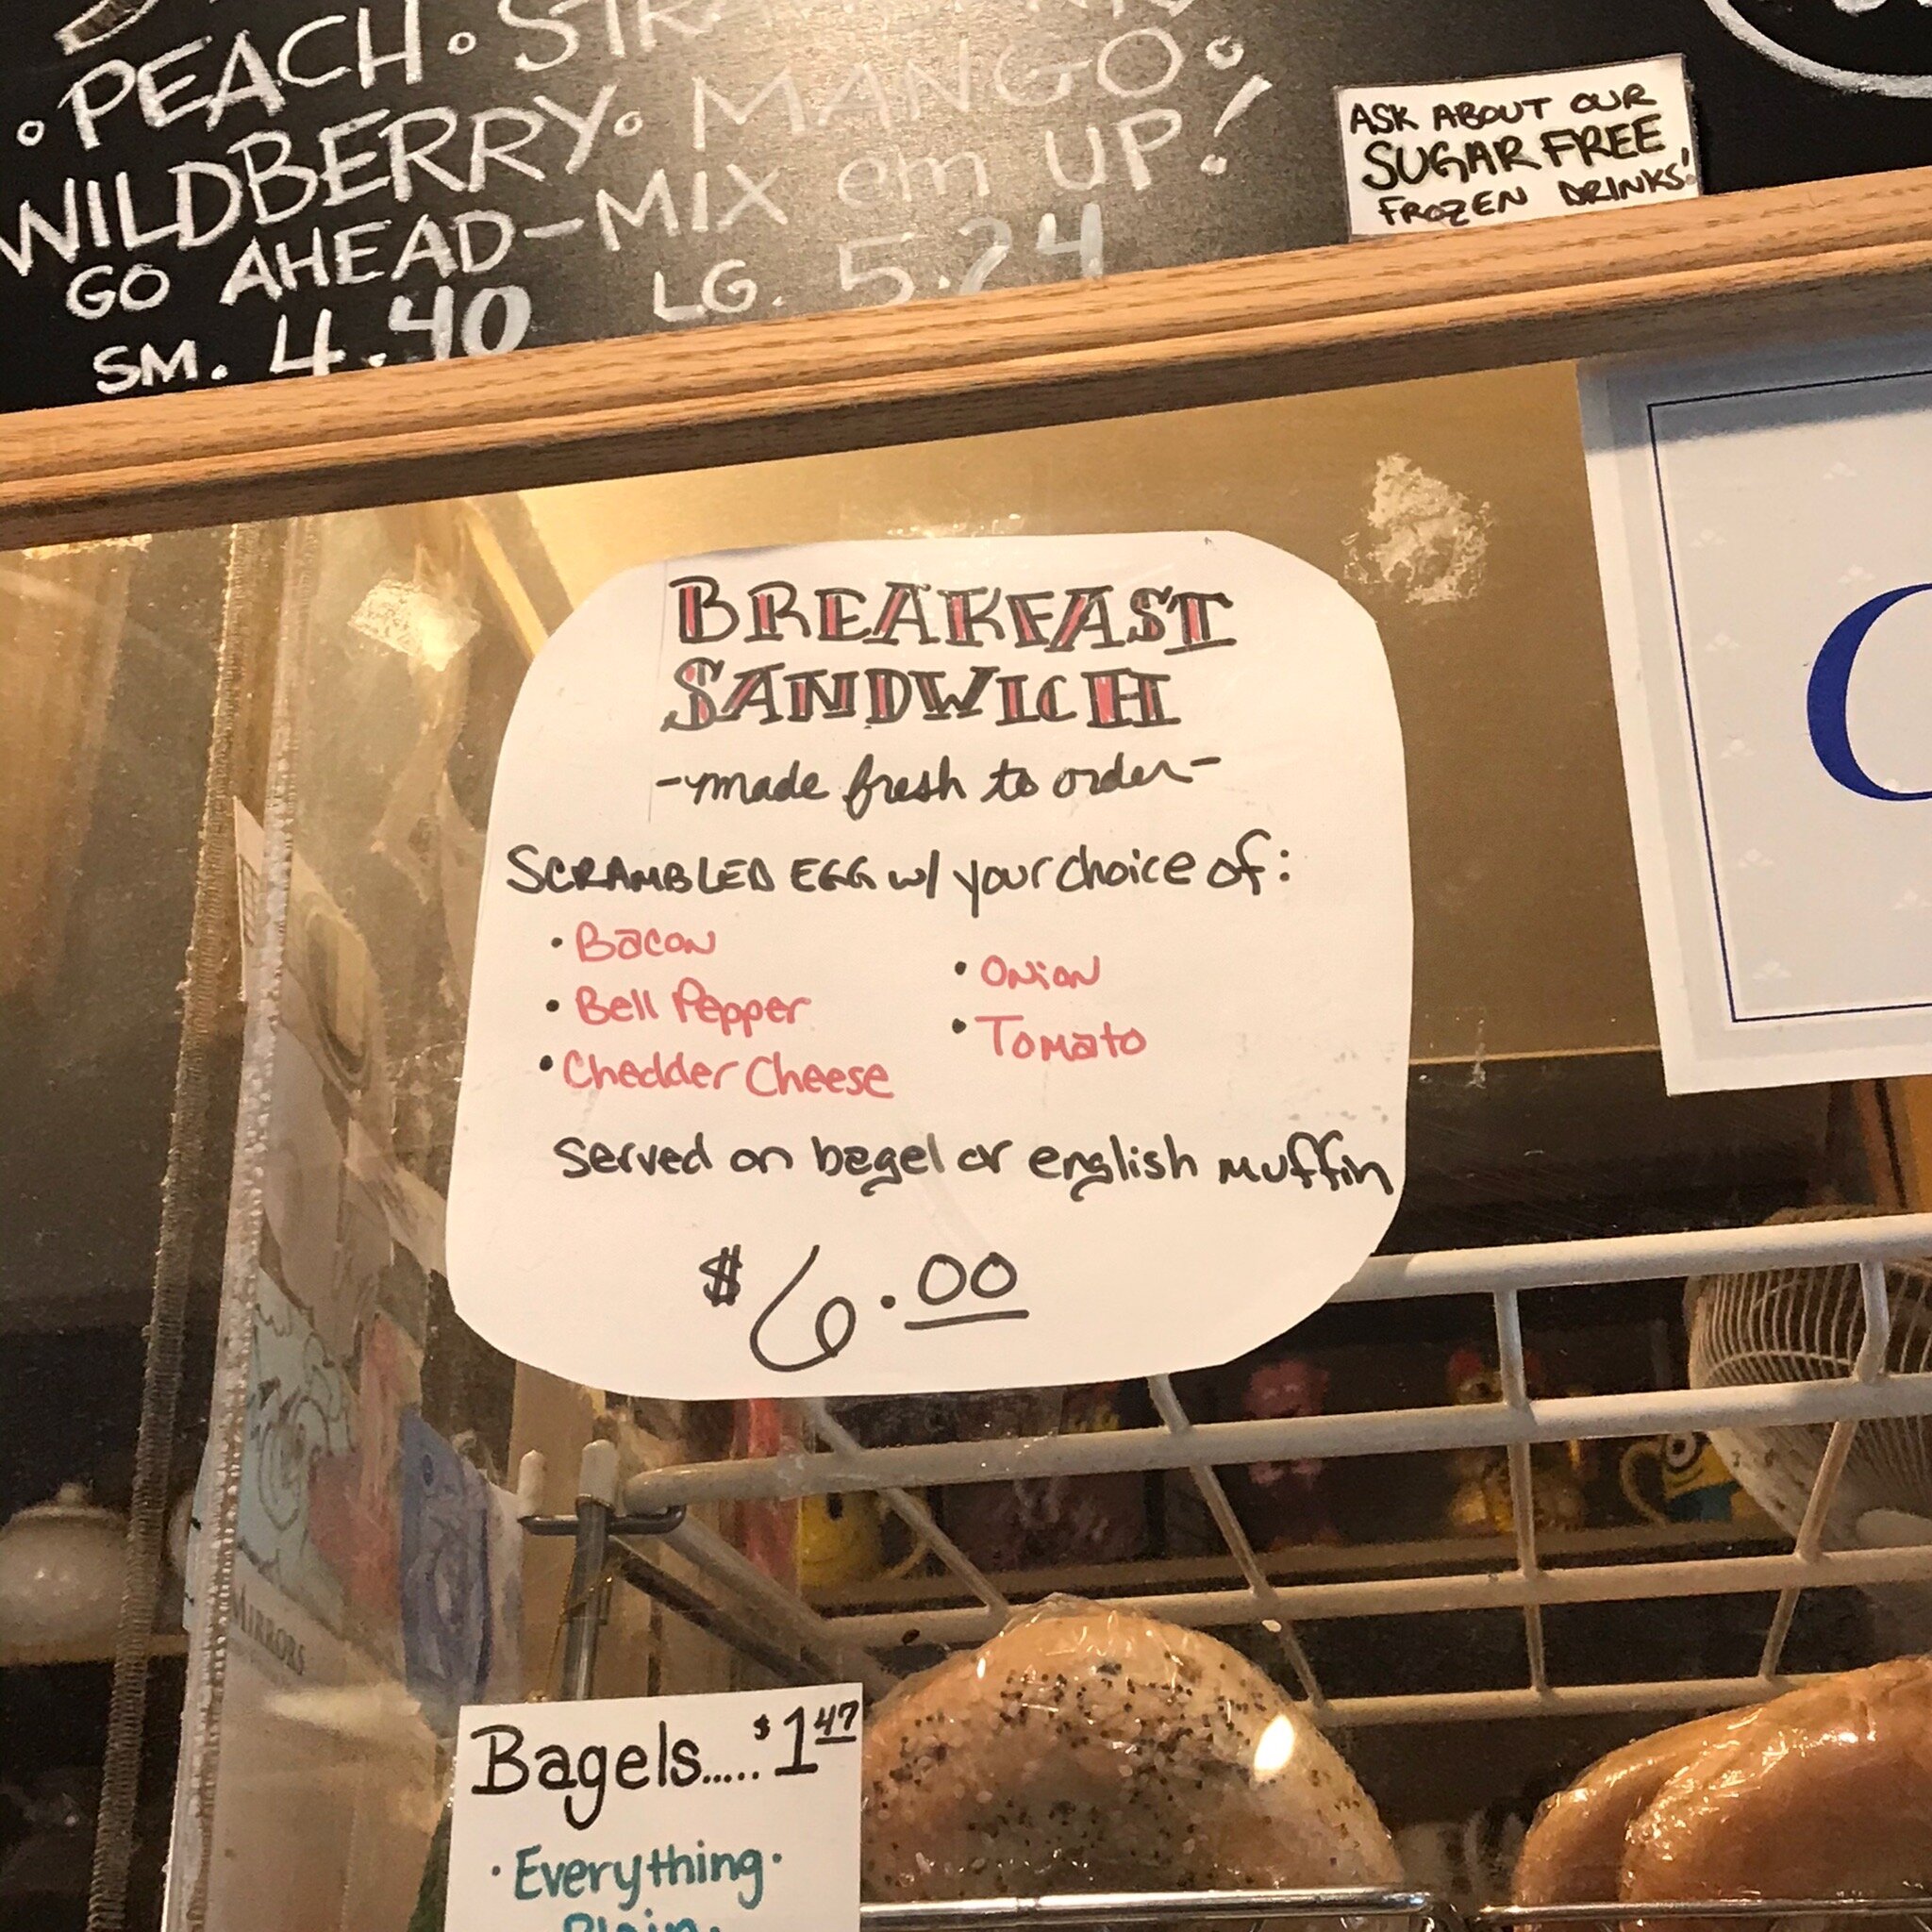 • PEACH •
WILDBERRY • MANGO •
GO AHEAD - MIX em UP!
SM. 4.40 LG. 5.24
ASK ABOUT OUR
SUGAR FREE
FROZEN DRINKS!
BREAKFAST
SANDWICH
- made fresh to order -
SCRAMBLED EGG w/ your choice of:
• Bacon
• Bell Pepper
• Chedder Cheese
• Onion
• Tomato
Served on bagel or english muffin
$6.00
MIRRORS
Bagels..... $1.47
• Everything •
Plain •